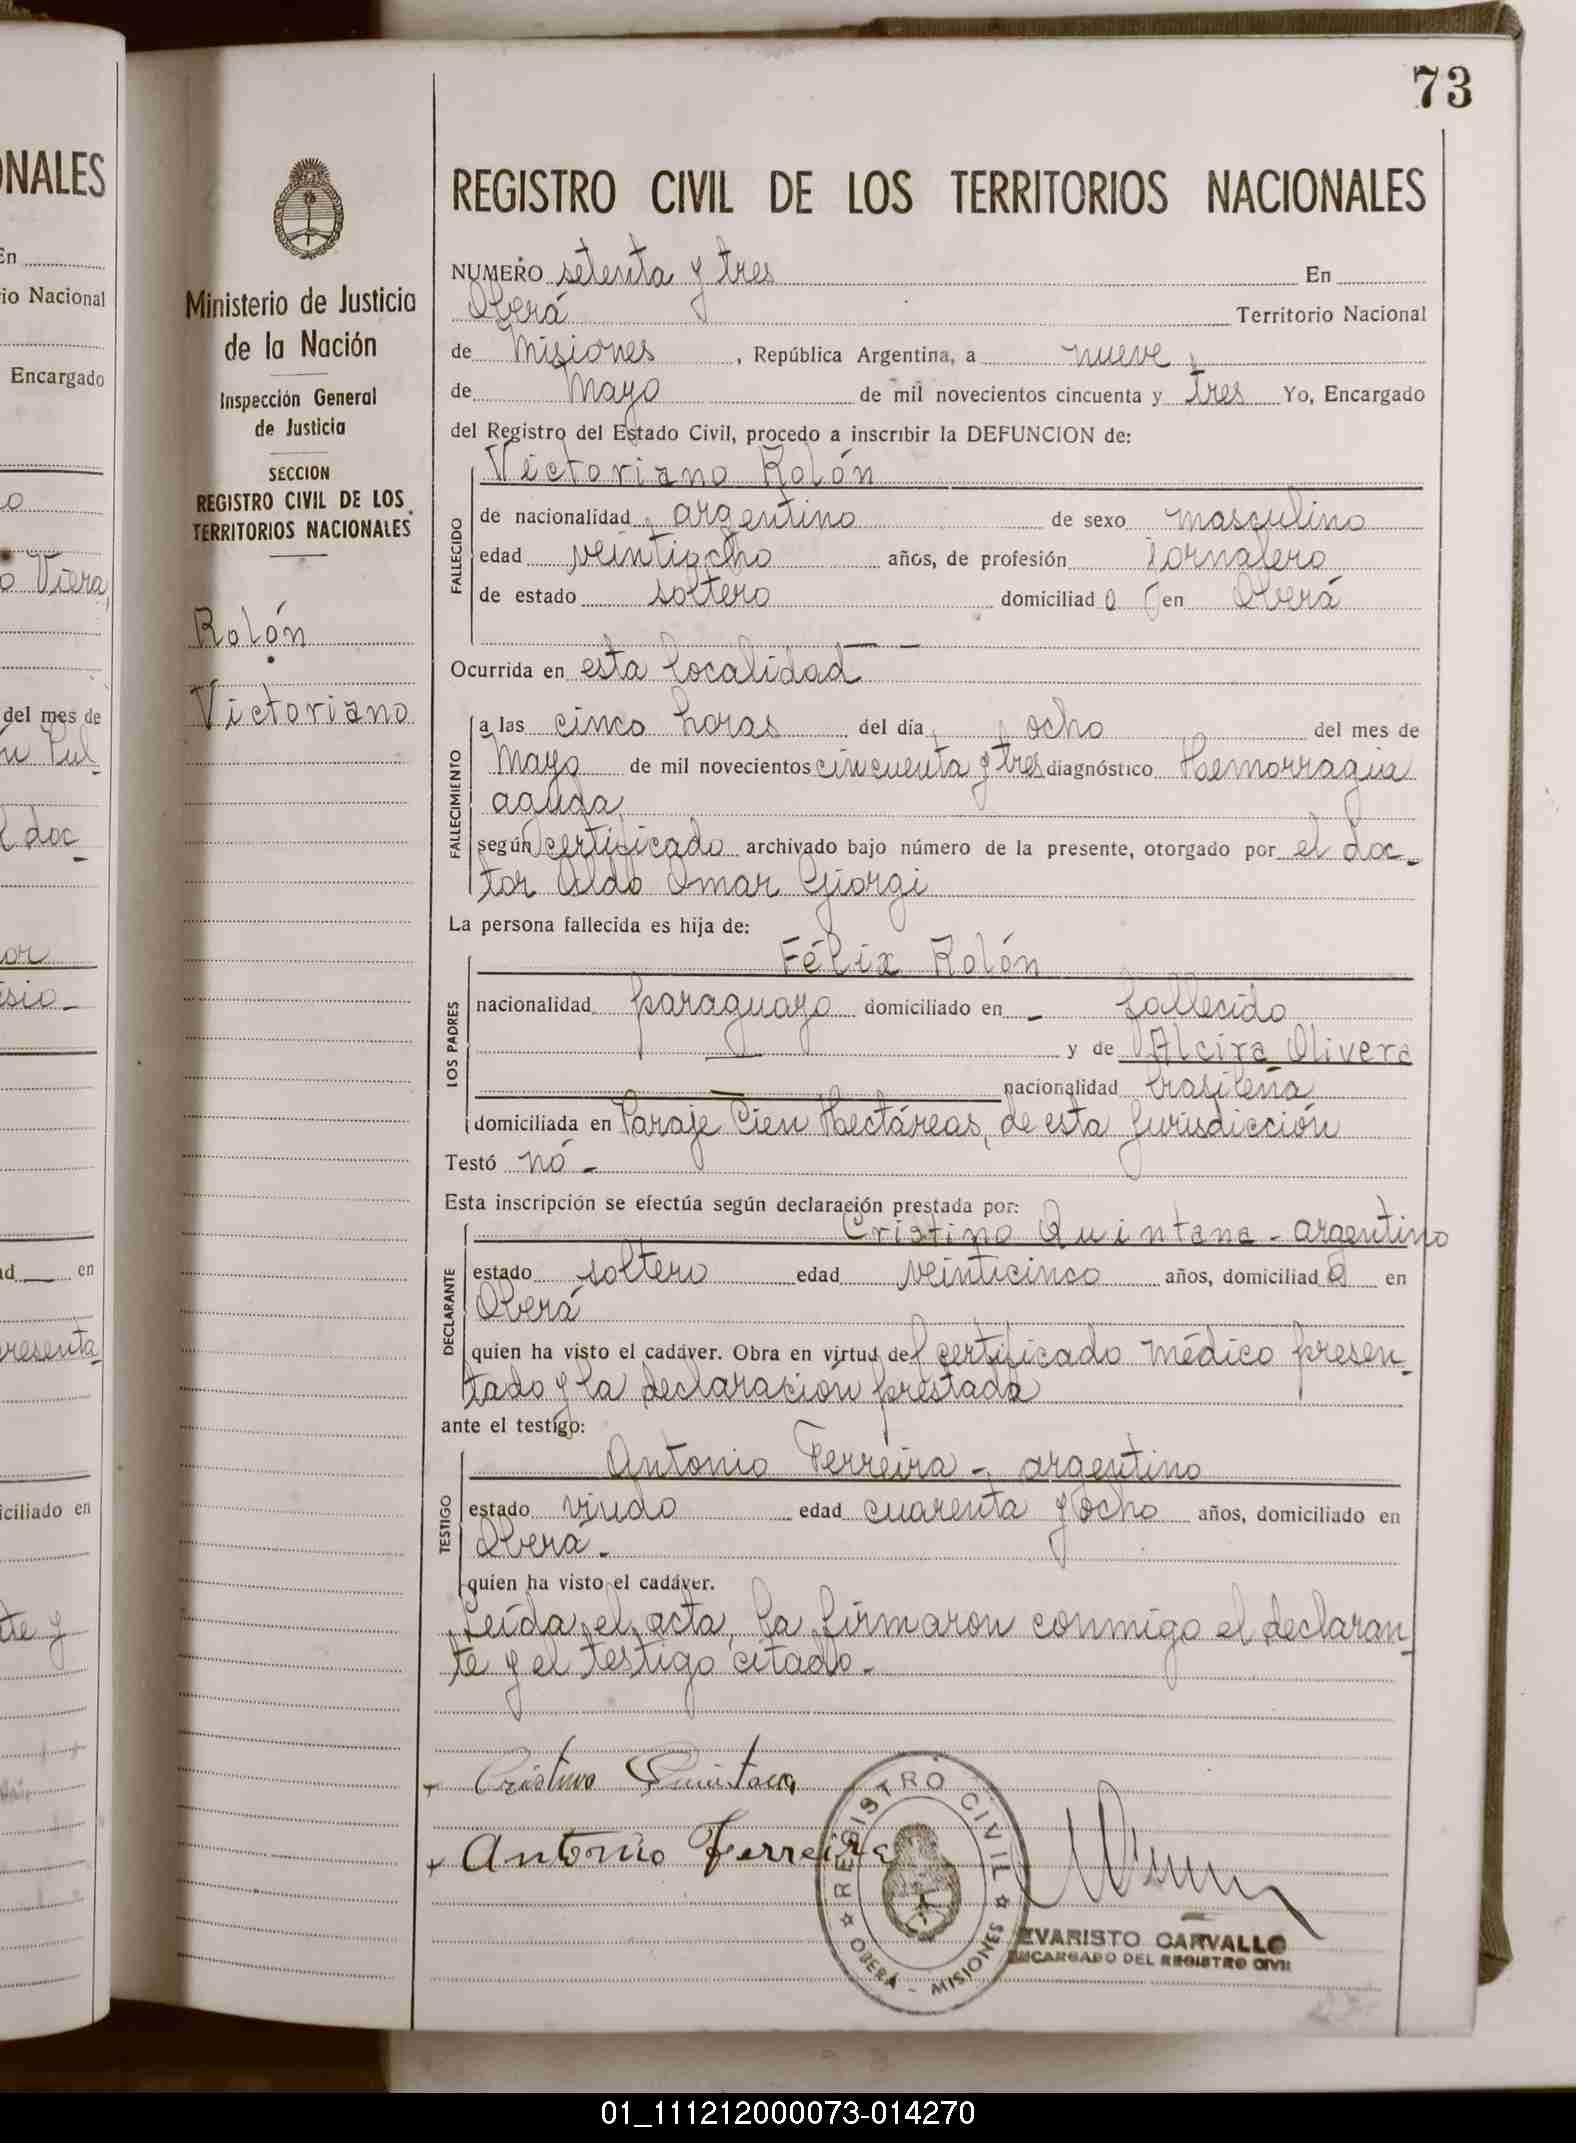 73
REGISTRO CIVIL DE LOS TERRITORIOS NACIONALES
NUMERO setenta y tres En
Oberá Territorio Nacional
de Misiones, República Argentina, a nueve
de Mayo de mil novecientos cincuenta y tres Yo, Encargado
del Registro del Estado Civil, procedo a inscribir la DEFUNCION de:
Victoriano Rolón
FALLECIDO
de nacionalidad argentino de sexo masculino
edad veintiocho años, de profesión jornalero
de estado soltero domiciliado en Oberá
Ocurrida en esta localidad
FALLECIMIENTO
a las cinco horas del día ocho del mes de
Mayo de mil novecientos cincuenta y tres diagnóstico Hemorragia
aguda
según certificado archivado bajo número de la presente, otorgado por el doc-
tor Aldo Omar Giorgi
La persona fallecida es hija de:
Félix Rolón
LOS PADRES
nacionalidad paraguayo domiciliado en - fallecido
y de Alcira Olivera
nacionalidad brasileña
domiciliada en Paraje Cien Hectáreas, de esta jurisdicción
Testó nó -
Esta inscripción se efectúa según declaración prestada por:
Cristino Quintana - argentino
DECLARANTE
estado soltero edad veinticinco años, domiciliado en
Oberá
quien ha visto el cadáver. Obra en virtud del certificado médico presen-
tado y la declaración prestada
ante el testigo:
Antonio Ferreira - argentino
TESTIGO
estado viudo edad cuarenta y ocho años, domiciliado en
Oberá.
quien ha visto el cadáver.
Leída el acta, la firmaron conmigo el declaran-
te y el testigo citado.-
Cristino Quintana
Antonio Ferreira
REGISTRO CIVIL
OBERÁ - MISIONES
EVARISTO CARVALLO
ENCARGADO DEL REGISTRO CIVIL
Ministerio de Justicia
de la Nación
Inspección General
de Justicia
SECCION
REGISTRO CIVIL DE LOS
TERRITORIOS NACIONALES
Rolón
Victoriano
ONALES
En
io Nacional
Encargado
o Viera,
del mes de
l doc-
or
ad en
presenta-
iciliado en
te y
01_111212000073-014270